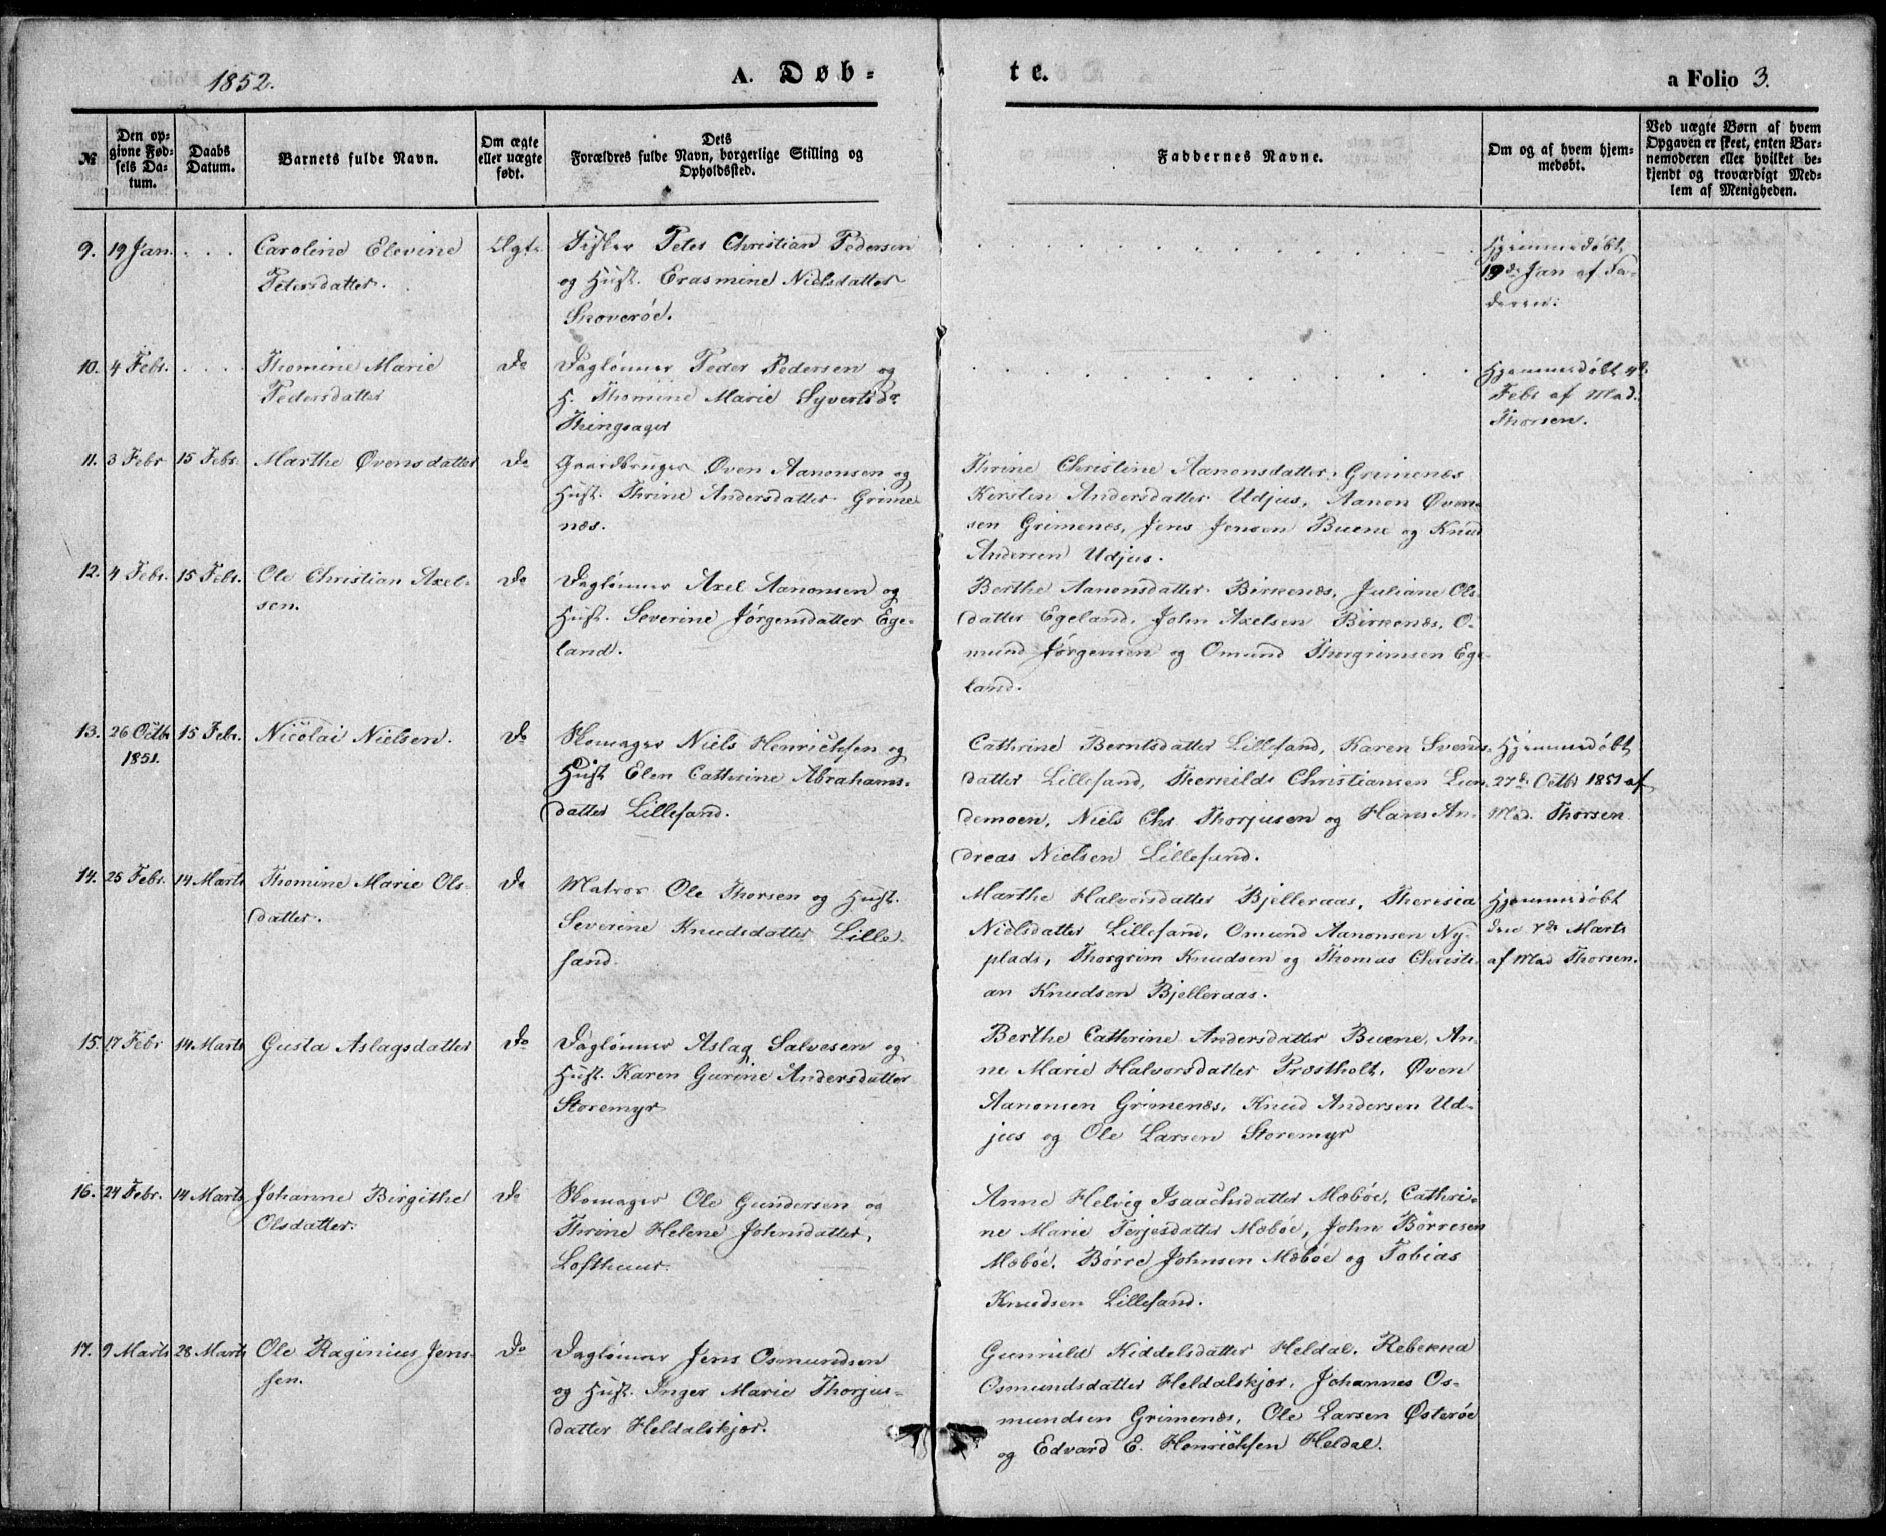 1852.
A. Døb-
te.
a Folio 3.
№
Den op-
givne Fød-
sels Da-
tum.
Daabs
Datum.
Barnets fulde Navn.
Om ægte
eller uægte
født.
Dets
Forældres fulde Navn, borgerlige Stilling og
Opholdssted.
Faddernes Navne.
Om og af hvem hjem-
medøbt.
Ved uægte Børn af hvem
Opgaven er skeet, enten Bar-
nemoderen eller hvilket be-
kjendt og troværdigt Med-
lem af Menigheden.
9. 19 Jan. . . . Caroline Elevine
Petersdatter.
Ægte
Fisker Peter Christian Pedersen
og Hust. Erasmine Nielsdatter
Skoverøe.
Hjemmedøbt
19de Jan af Fa-
deren.
10. 4 Febr. . . . . Thomine Marie
Pedersdatter
Do
Daglønner Peder Pedersen og
H. Thomine Marie Syvertsdr
Thingsager
Hjemmedøbt 4de
Febr af Mad.
Thorsen.
11. 3 Febr 15 Febr. Marthe Øvensdatter
Do
Gaardbruger Øven Aanonsen og
Hust. Thrine Andersdatter Grime
næs.
Thrine Christine Aanonsdatter Grimenæs
Kersten Andersdatter Udjus, Aanon Øven-
sen Grimenæs, Jens Jensen Buene og Knud
Andersen Udjus.
12. 4 Febr. 15 Febr. Ole Christian Axel-
sen.
Do
Daglønner Axel Aanonsen og
Hust. Severine Jørgensdatter Ege-
land.
Berthe Aanonsdatter Birkenæs, Juliane Ols
datter Egeland, John Axelsen Birkenæs, O-
mund Jørgensen og Omund Thorgrimsen Ege-
land.
13. 26 Octbr 15 Febr. Nicolai Nielsen.
1851.
Do
Skomager Niels Henrichsen og
Hust Elen Cathrine Abrahams-
datter Lillesand.
Cathrine Berntsdatter Lillesand, Karen Svends-
datter Lillesand, Therkilds Christiansen Lun-
demoen, Niels Chr. Thorjusen og Hans An-
dreas Nielsen Lillesand.
Hjemmedøbt
27de Octbr 1851 af
Mad. Thorsen
14. 25 Febr. 14 Marts Thomine Marie Ols-
datter.
Do
Matros Ole Thorsen og Hust.
Severine Knudsdatter Lille-
sand.
Marthe Halvorsdatter Bjelleraas, Theresia
Nielsdatter Lillesand, Omund Aanonsen Ny-
plads, Thorgrim Knudsen og Thomas Christi-
an Knudsen Bjelleraas.
Hjemmedøbt
den 7de Marts
af Mad Thorsen.
15. 17 Febr 14 Marts Gusta Aslagsdatter
Do
Daglønner Aslag Salvesen og
Hust. Karen Gurine Andersdatter
Storemyr
Berthe Cathrine Andersdatter Buene, An-
ne Marie Halvorsdatter Præstholt, Øven
Aanonsen Grimenæs, Knud Andersen Ud-
jus og Ole Larsen Storemyr
16. 24 Febr. 14 Marts Johanne Birgithe
Olsdatter.
Do
Skomager Ole Gundersen og
Thrine Helene Johnsdatter,
Lofthuus.
Anne Helvig Isaachsdatter Mæbøe, Cathri-
ne Marie Terjesdatter Mæbøe, John Børresen
Mæbøe, Børre Johnsen Mæbøe og Tobias
Knudsen Lillesand.
17. 9 Marts 28 Marts Ole Raginius Jens-
sen.
Do
Daglønner Jens Osmundsen
og Hust. Inger Marie Thorjus-
datter Heldalskjær.
Gunnild Kiddelsdatter Heldal, Rebekka
Osmundsdatter Heldalskjær, Johannes Os-
mundsen Grimenæs, Ole Larsen Østerøe
og Edvard E. Henrichsen Heldal.